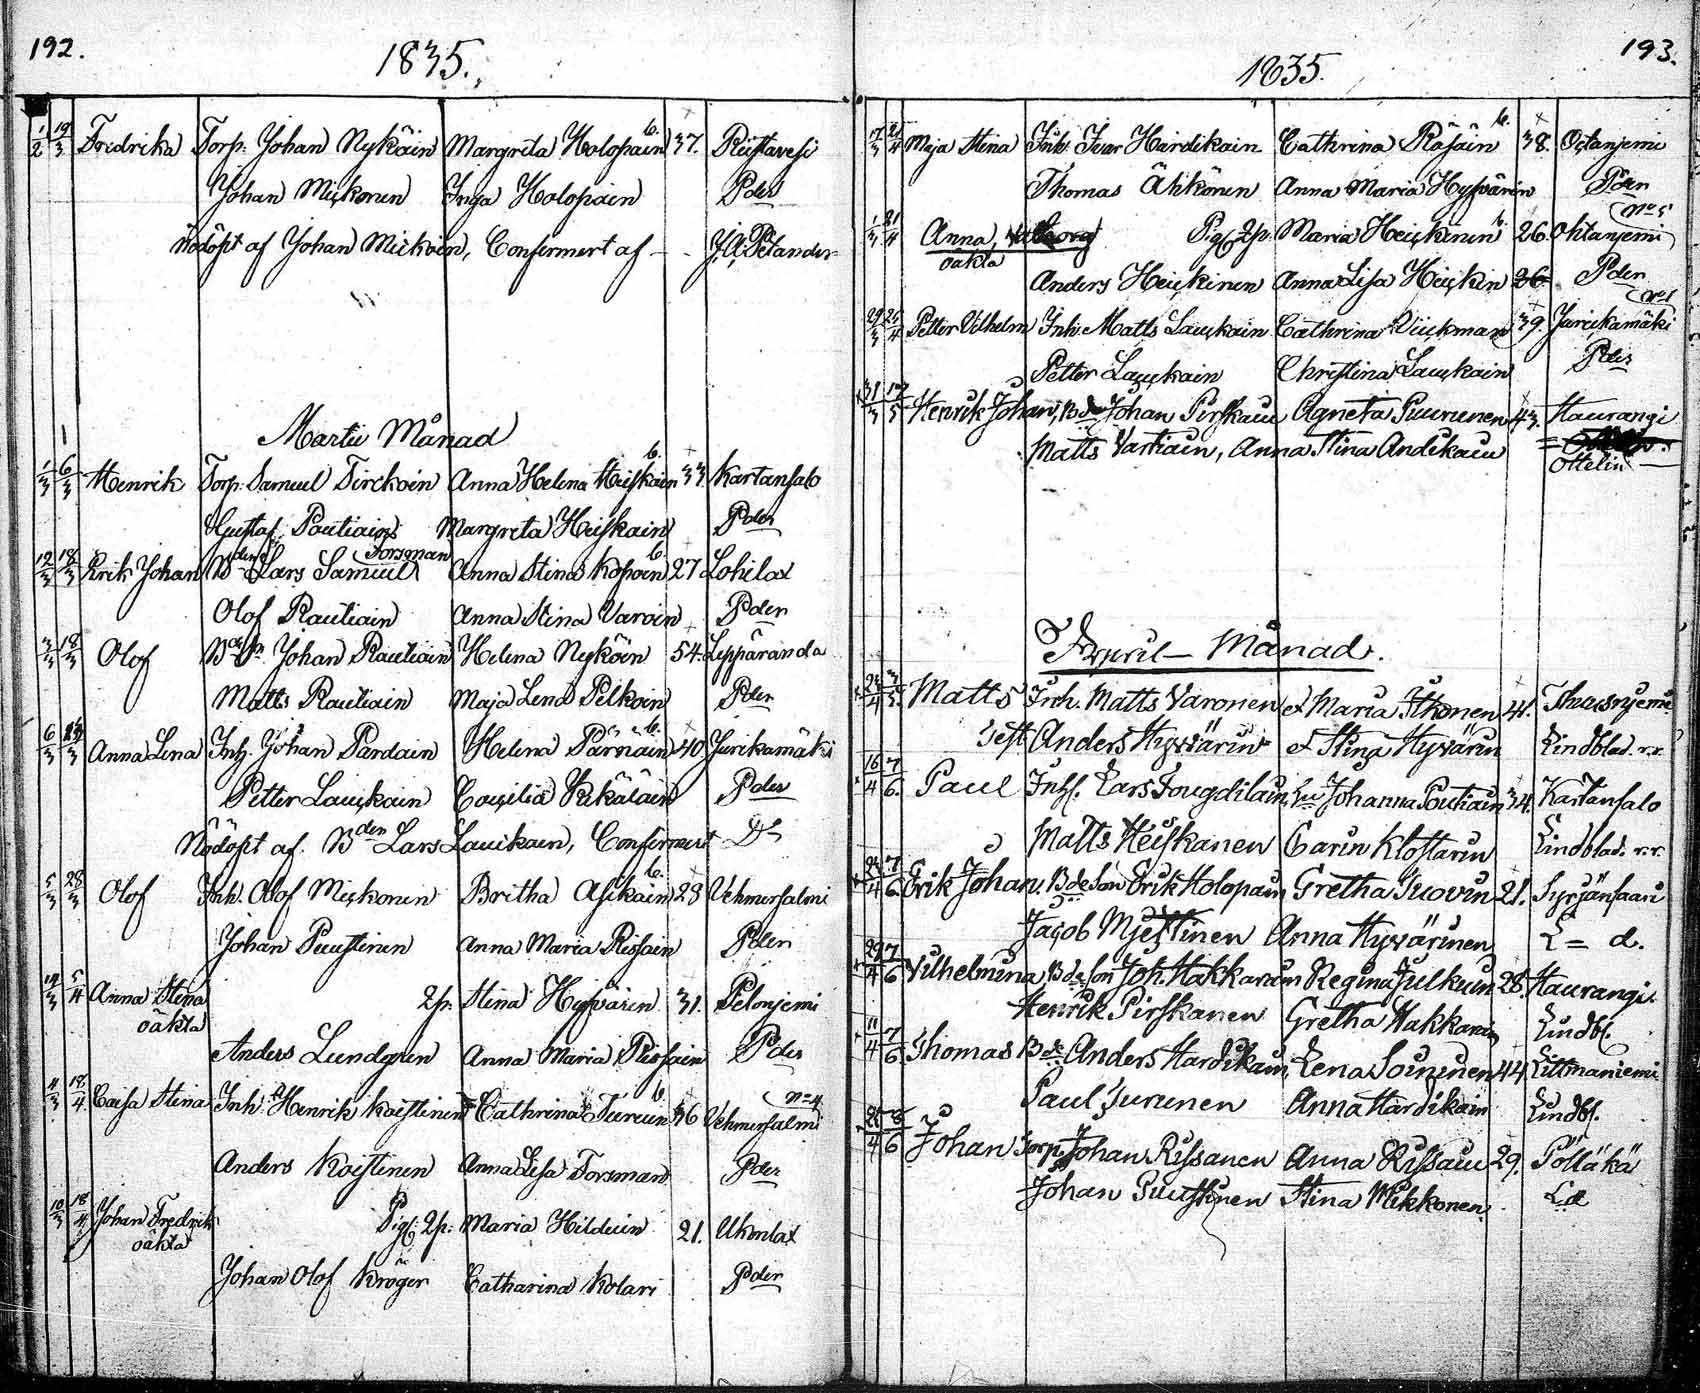 192.
1835.
1/2 19/3 Fredrika Torp. Johan Nykäin Margreta Holopain b. 37. Riistavesi
Johan Mickonen Inga Holopain Pder
Nödöpt af Johan Mickoin, Confirmert af J. A. Petander
Martii Månad
1/3 6/3 Henrik Torp. Samuel Tirckoin Anna Helena Heiskain b. 33. Kartansalo
Gustaf Pautiain Margreta Heiskain Pder
12/3 18/3 Erik Johan Bden Lars Samuel Forsman Anna Stina Kopoin b. 27 Lohilax
Olof Rautiain Anna Stina Varoin Pder
3/3 18/3 Olof Johan Rautiain Helena Nyköin 54. Lepparanda
Matts Rautiain Maja Lena Pelkoin Pder
6/3 Anna Lena Inh. Johan Pardain Helena Pärnäin b. 40 Jurikamäki
Petter Lauckain Cecilia Kekäläin Pder
Nödöpt af Bden Lars Lauikain, Confirmert Ds
5/3 28/3 Olof Inh. Olof Mickonen Britha Asikain b. 28 Vehmersalmi
Johan Puustinen Anna Maria Rissain Pder
14/3 5/4 Anna Stina oäkta 2p. Stina Hyfvärin 31. Pelonjemi
Anders Lundgren Anna Maria Rissain Pder
4/3 18/4 Caisa Stina Inh. Henrik Koistinen Cathrina Tureun b. 36 Vehmersalmi n=4
Anders Koistinen Anna Lisa Forsman Pder
10/3 18/4 Johan Fredrik oäkta Pig. 2p. Maria Hilduin 21. Ukonlax
Johan Olof Kröger Catharina Kolari Pder
193.
1835.
7/3 21/4 Maja Stina Inh. Ivar Hardikain Cathrina Räsäin b. 38. Ohtanjemi
Thomas Ähkönen Anna Maria Hyfvärin Pder
1/3 21/4 Anna, oäkta Pig. 2p. Maria Heickinen b. 26. Ohtanjemi No 5
Anders Heickinen Anna Lisa Heickin 26 Pder
29/3 25/4 Petter Vilhelm Inh. Matts Lauckain Cathrina Vickman 39. Jurickamäki No 1
Petter Lauckain Christina Lauckain Pder
31/3 17/5 Henrik Johan, Bde Johan Pirskain Agneta Puurunen 43. Haurangi
Matts Vartiain, Anna Stina Andikain Ottelin
Aprill Månad.
24/4 3/5 Matts Inh. Matts Varonen et Maria Ikonen 41. Thuusnjemi
Test. Anders Hyvärin et Stina Hyvärin Lindblad. v.v.
16/4 7/6. Paul Inh. Lars Fougdilain, Johanna Poutiain 34. Kartansalo
Matts Heiskanen Carin Klostarin Lindblad. v.v.
24/4 7/6 Erik Johan, BdeSon Erik Holopain Gretha Suovin 21. Syrjänsaari
Jacob Myettinen Anna Hyvärinen L = d.
29/4 7/6 Vilhelmina BdeSon Joh. Hakkarain Regina Julkuin 28. Haurangi.
Henrik Pirskanen Gretha Hakkarain Lindbl.
11/4 7/6. Thomas Bde Anders Hardikain, Lena Soininen 44 Littmaniemi
Paul Jurunen Anna Hardikain Lindbl.
26/4 8/6 Johan Torp Johan Rissanen Anna Rissain 29. Pölläkä
Johan Puustinen Stina Mikkonen. L. d